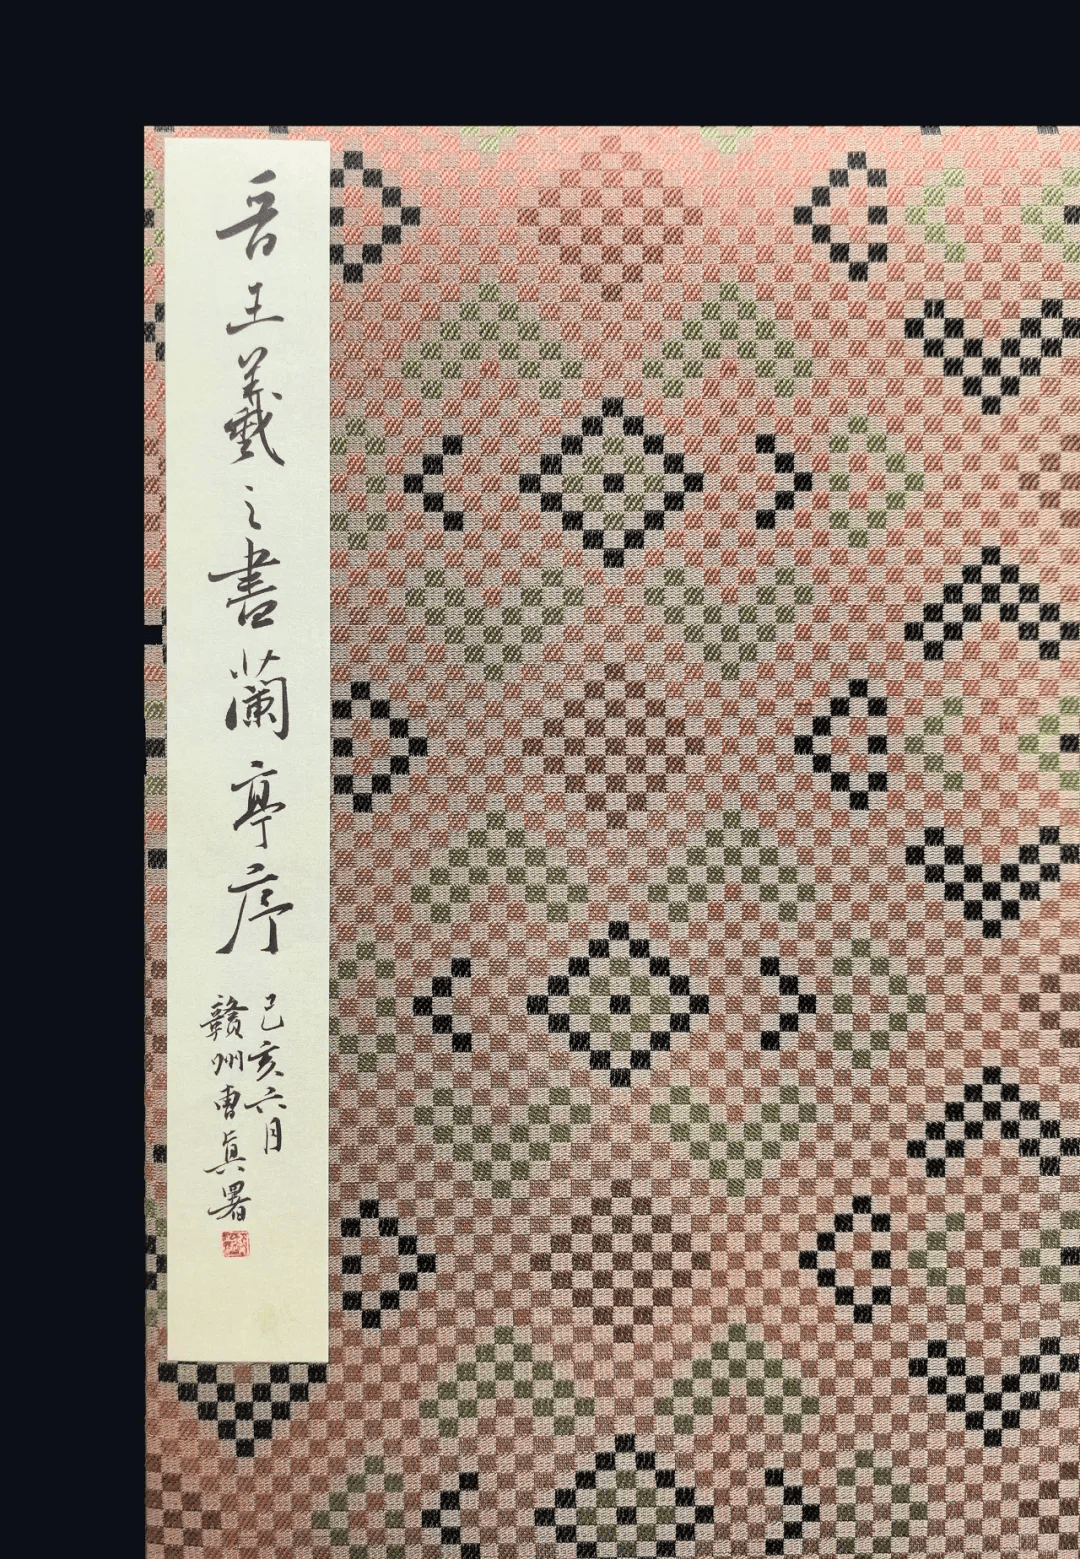 晋王羲之書蘭亭序
己亥六月
贛州曹真署